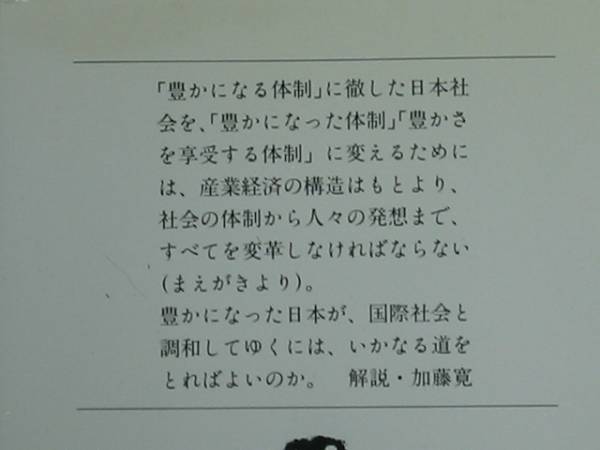 「豊かになる体制」に徹した日本社
会を、「豊かになった体制」「豊かさ
を享受する体制」に変えるために
は、産業経済の構造はもとより、
社会の体制から人々の発想まで、
すべてを変革しなければならない
(まえがきより)。
豊かになった日本が、国際社会と
調和してゆくには、いかなる道を
とればよいのか。　解説・加藤寛